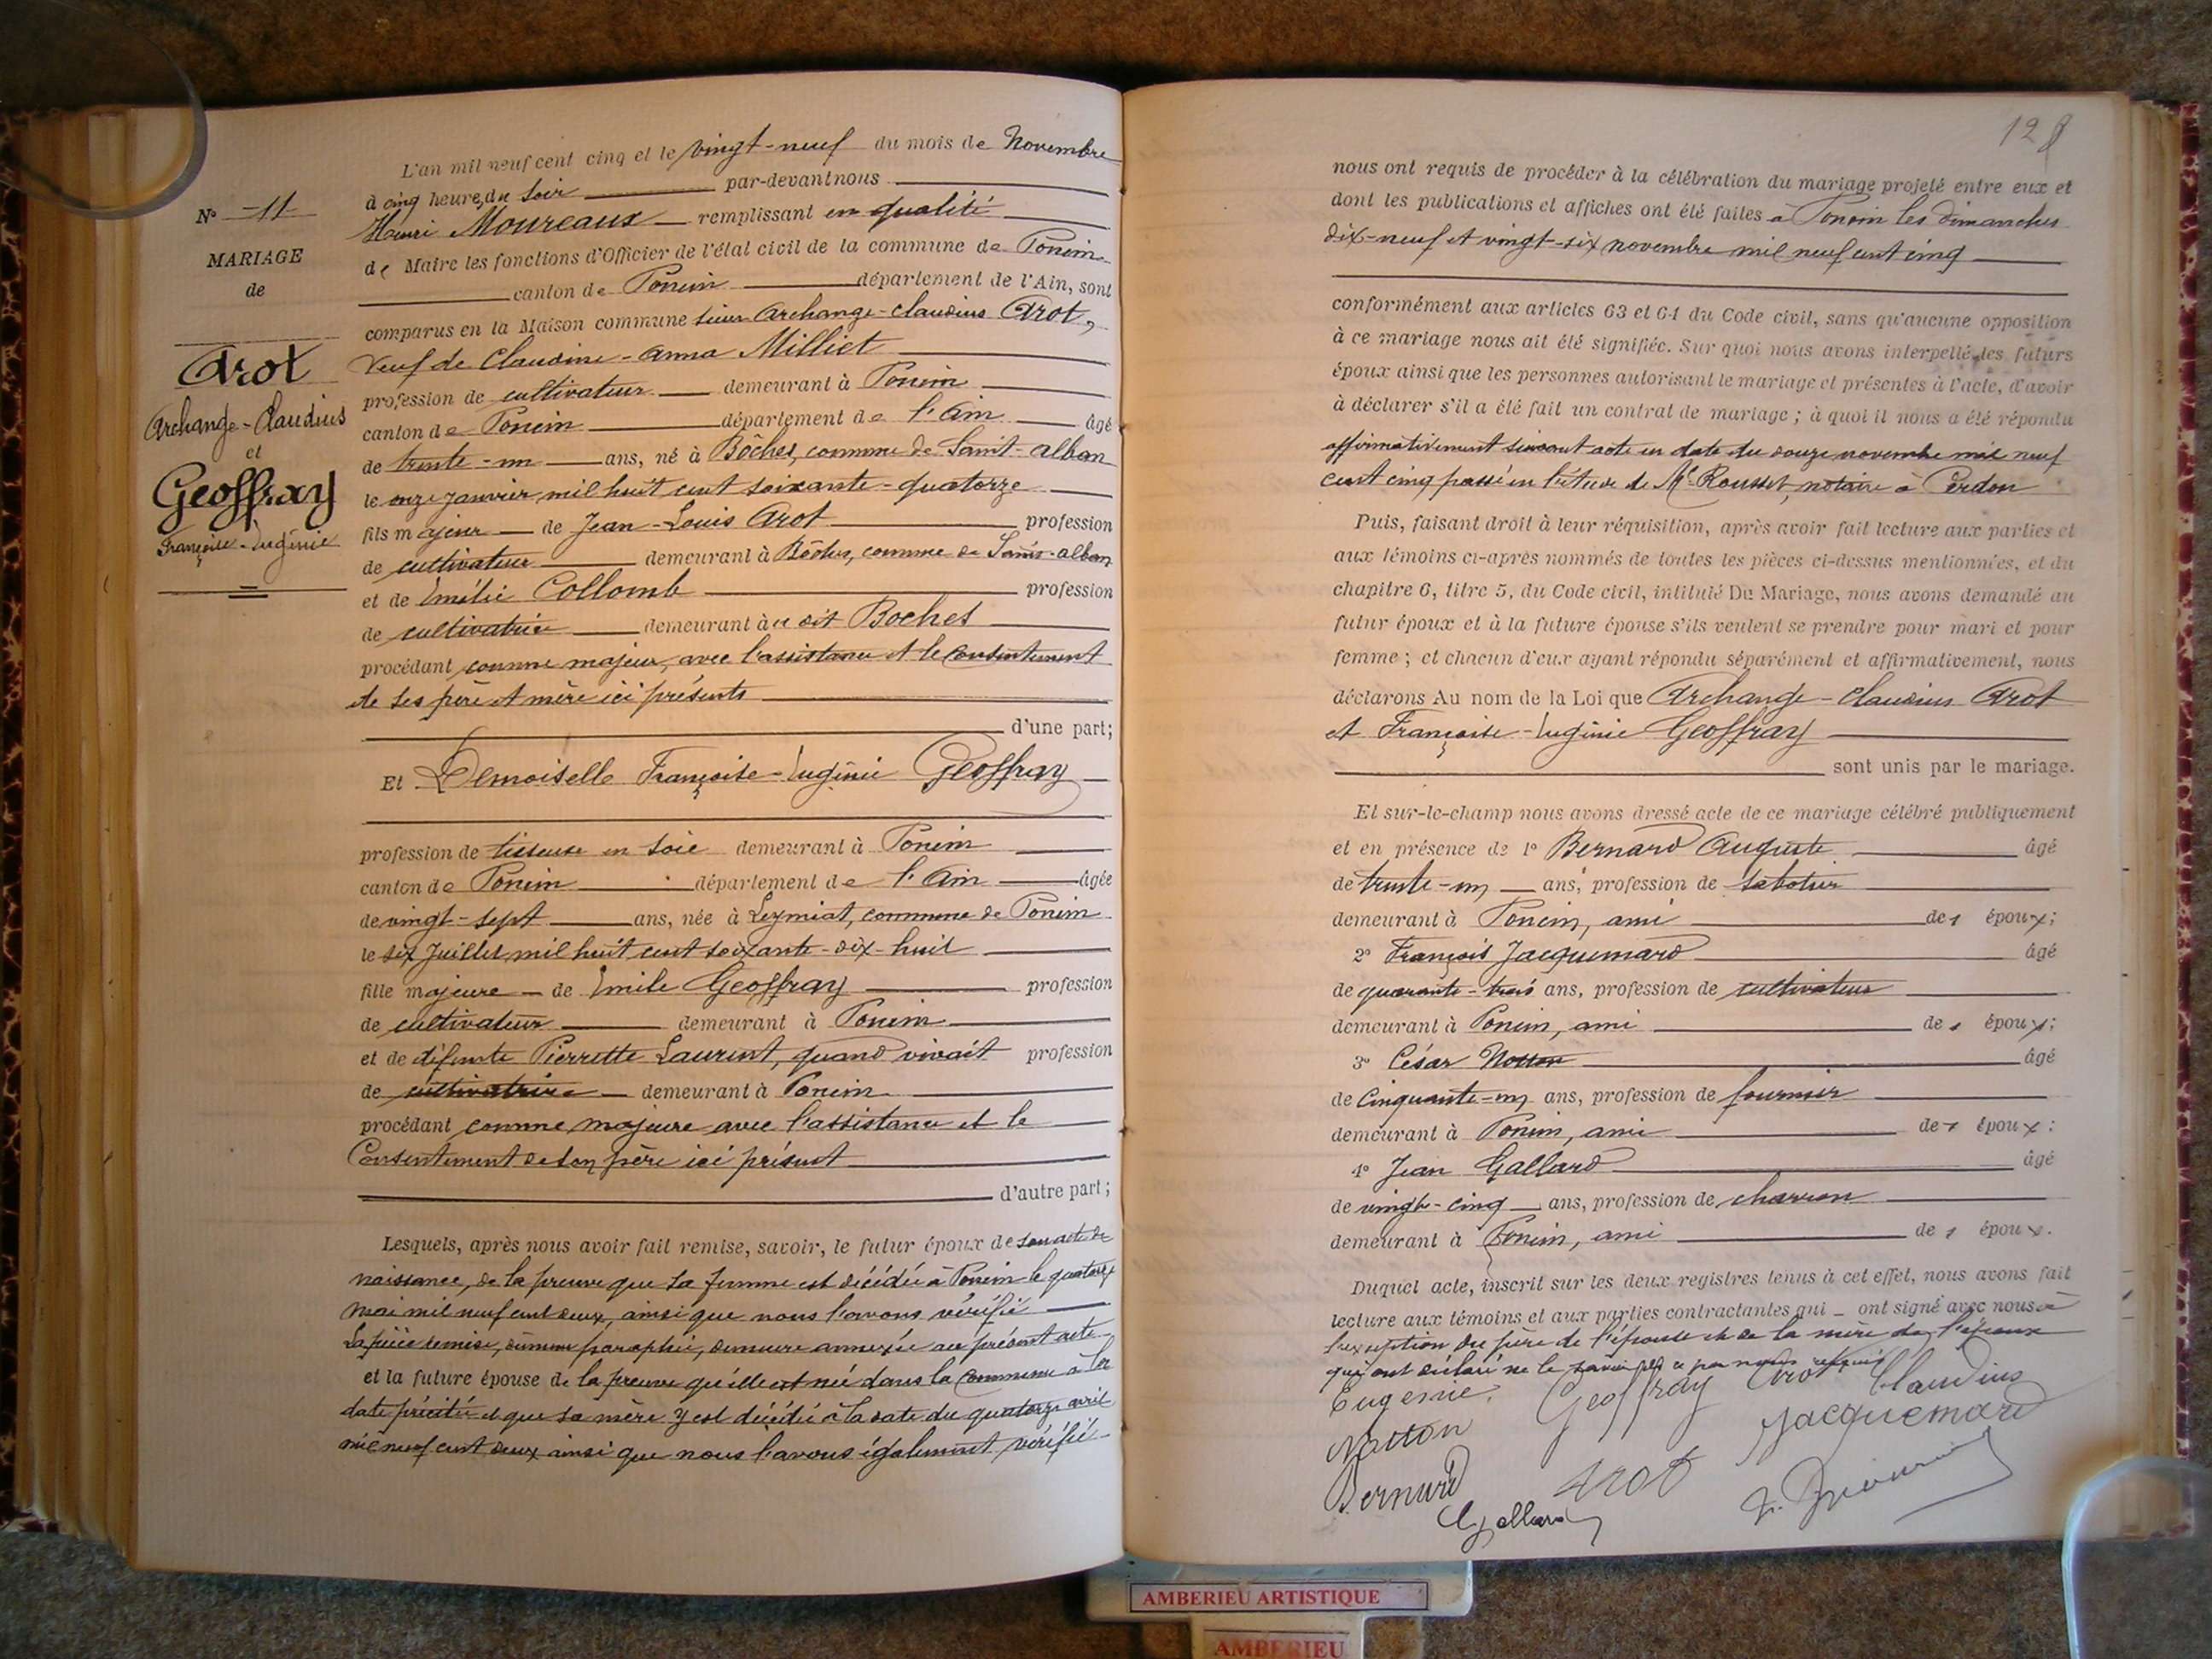 N° 11
MARIAGE
de
Arot
Archange-Claudius
et
Geoffray
Françoise-Eugénie
L'an mil neuf cent cinq et le vingt-neuf du mois de Novembre
à cinq heures du soir par-devant nous
Henri Moureaux remplissant en qualité
de Maire les fonctions d'Officier de l'état civil de la commune de Poncin
canton de Poncin département de l'Ain, sont
comparus en la Maison commune sieur Archange-Claudius Arot,
veuf de Claudine-Anna Milliet
profession de cultivateur demeurant à Poncin
canton de Poncin département de l'Ain âgé
de trente-un ans, né à Bôches, commune de Saint-Alban
le onze janvier mil huit cent soixante-quatorze
fils majeur de Jean-Louis Arot profession
de cultivateur demeurant à Bôches, commune de Saint-Alban
et de Emélie Collomb profession
de cultivatrice demeurant au dit Boches
procédant comme majeur, avec l'assistance et le consentement
de ses père et mère ici présents
d'une part;
Et Demoiselle Françoise-Eugénie Geoffray
profession de tisseuse en soie demeurant à Poncin
canton de Poncin département de l'Ain âgée
de vingt-sept ans, née à Leymiat, commune de Poncin
le six Juillet mil huit cent soixante-dix-huit
fille majeure de Emile Geoffray profession
de cultivateur demeurant à Poncin
et de défunte Pierrette Laurent, quand vivait profession
de cultivatrice demeurant à Poncin
procédant comme majeure avec l'assistance et le
Consentement de son père ici présent
d'autre part;
Lesquels, après nous avoir fait remise, savoir, le futur époux de son acte de
naissance, de la preuve que sa femme est décédée à Poncin le quatorze
mai mil neuf cent deux, ainsi que nous l'avons vérifié
La pièce remise, dûment paraphée, demeure annexée au présent acte
et la future épouse de la preuve qu'elle est née dans la commune à la
date précitée et que sa mère y est décédée à la date du quatorze avril
mil neuf cent deux ainsi que nous l'avons également vérifié
128
nous ont requis de procéder à la célébration du mariage projeté entre eux et
dont les publications et affiches ont été faites à Poncin les dimanches
dix-neuf et vingt-six novembre mil neuf cent cinq
conformément aux articles 63 et 64 du Code civil, sans qu'aucune opposition
à ce mariage nous ait été signifiée. Sur quoi nous avons interpellé les futurs
époux ainsi que les personnes autorisant le mariage et présentes à l'acte, d'avoir
à déclarer s'il a été fait un contrat de mariage ; à quoi il nous a été répondu
affirmativement suivant acte en date du douze novembre mil neuf
cent cinq passé en l'étude de Me Rousset, notaire à Cerdon
Puis, faisant droit à leur réquisition, après avoir fait lecture aux parties et
aux témoins ci-après nommés de toutes les pièces ci-dessus mentionnées, et du
chapitre 6, titre 5, du Code civil, intitulé Du Mariage, nous avons demandé au
futur époux et à la future épouse s'ils veulent se prendre pour mari et pour
femme ; et chacun d'eux ayant répondu séparément et affirmativement, nous
déclarons Au nom de la Loi que Archange-Claudius Arot
et Françoise-Eugénie Geoffray
sont unis par le mariage.
Et sur-le-champ nous avons dressé acte de ce mariage célébré publiquement
et en présence de 1° Bernard Auguste âgé
de trente-un ans, profession de sabotier
demeurant à Poncin, ami des époux;
2° François Jacquemard âgé
de quarante-trois ans, profession de cultivateur
demeurant à Poncin, ami des époux;
3° César Notton âgé
de cinquante-un ans, profession de fournier
demeurant à Poncin, ami des époux;
4° Jean Gallard âgé
de vingt-cinq ans, profession de charron
demeurant à Poncin, ami des époux.
Duquel acte, inscrit sur les deux registres tenus à cet effet, nous avons fait
lecture aux témoins et aux parties contractantes qui ont signé avec nous à
l'exception du père de l'épouse et de la mère de l'époux
qui ont déclaré ne le savoir de ce par nous requis
Eugenie Geoffray Arot Claudius
Notton Jacquemard
Bernard Arot
Gallard
AMBERIEU ARTISTIQUE
AMBERIEU